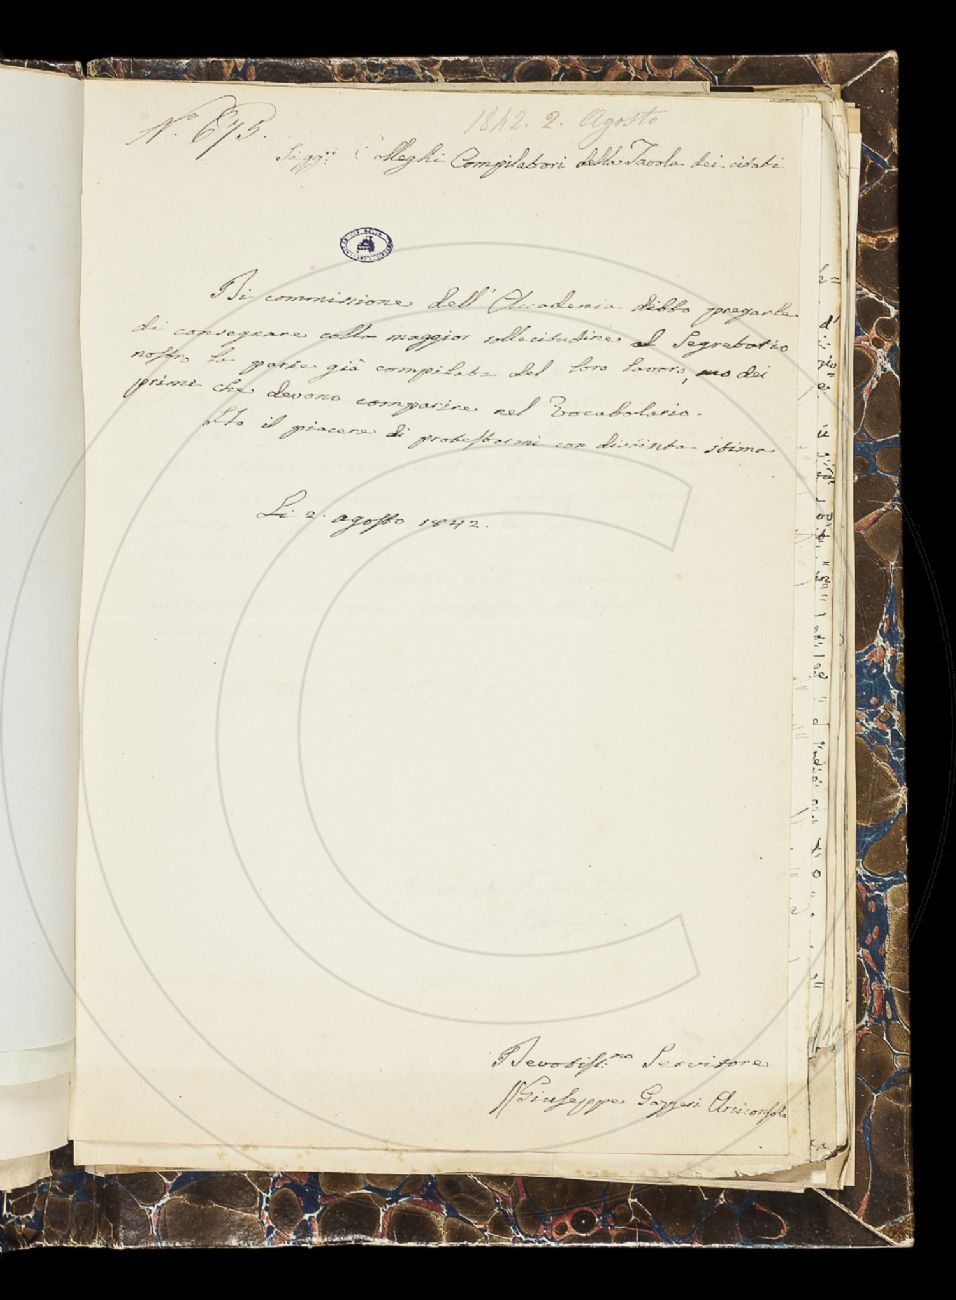 N.° 675.
1842. 2. Agosto
Sigg.ri Colleghi Compilatori della Tavola dei citati
Di commissione dell' Accademia debbo pregarle
di consegnare colla maggior sollecitudine al Segretario
nostro la parte già compilata del loro lavoro, uno dei
primi che devono comparire nel Vocabolario.
Ho il piacere di protestarmi con distinta stima
Li 2. agosto 1842.
Devotiss.mo Servitore
Giuseppe Gazzeri Arciconsolo